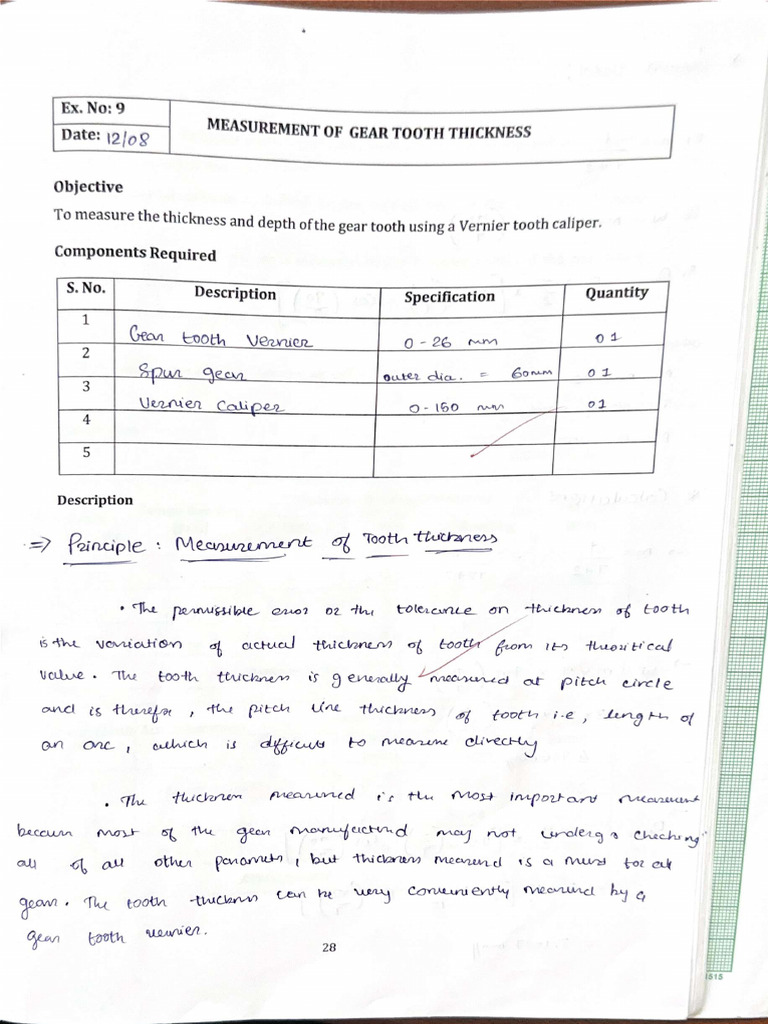 Ex. No: 9
Date: 12/08
MEASUREMENT OF GEAR TOOTH THICKNESS
Objective
To measure the thickness and depth of the gear tooth using a Vernier tooth caliper.
Components Required
S. No. Description Specification Quantity
1 Gear tooth Vernier 0-26 mm 01
2 Spur gear outer dia. = 60mm 01
3 Vernier caliper 0-150 mm 01
4
5
Description
⇒ Principle : Measurement of Tooth thickness
• The permissible error or the tolerance on thickness of tooth
is the variation of actual thickness of tooth from its theoritical
value. The tooth thickness is generally measured at pitch circle
and is therefore, the pitch line thickness of tooth i.e, length of
an arc, which is difficult to measure directly
• The thickness measured is the most important measurement
because most of the gear manufactured may not undergo checking
all of all other parameters, but thickness measured is a must for all
gears. The tooth thickness can be very conveniently measured by a
gear tooth vernier.
28
1515